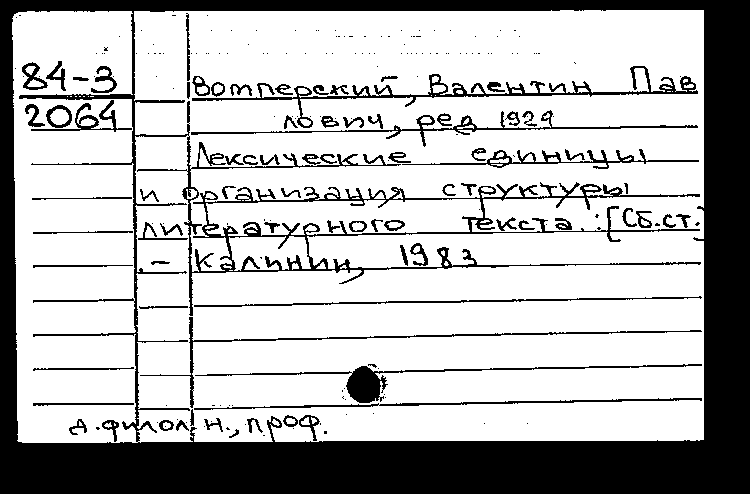 84-3 Вомперский, Валентин Пав
2064 лович, ред 1929
Лексические единицы
и организация структуры
литературного текста.:[Сб.ст.]
.- Калинин, 1983
д.филол.н., проф.